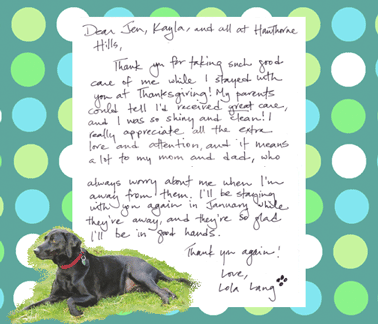 Dear Jen, Kayla, and all at Hawthorne
Hills,
Thank you for taking such good
care of me while I stayed with
you at Thanksgiving! My parents
could tell I'd received great care,
and I was so shiny and clean! I
really appreciate all the extra
love and attention, and it means
a lot to my mom and dad, who
always worry about me when I'm
away from them. I'll be staying
with you again in January while
they're away, and they're so glad
I'll be in good hands.
Thank you again!
Love,
Lola Lang